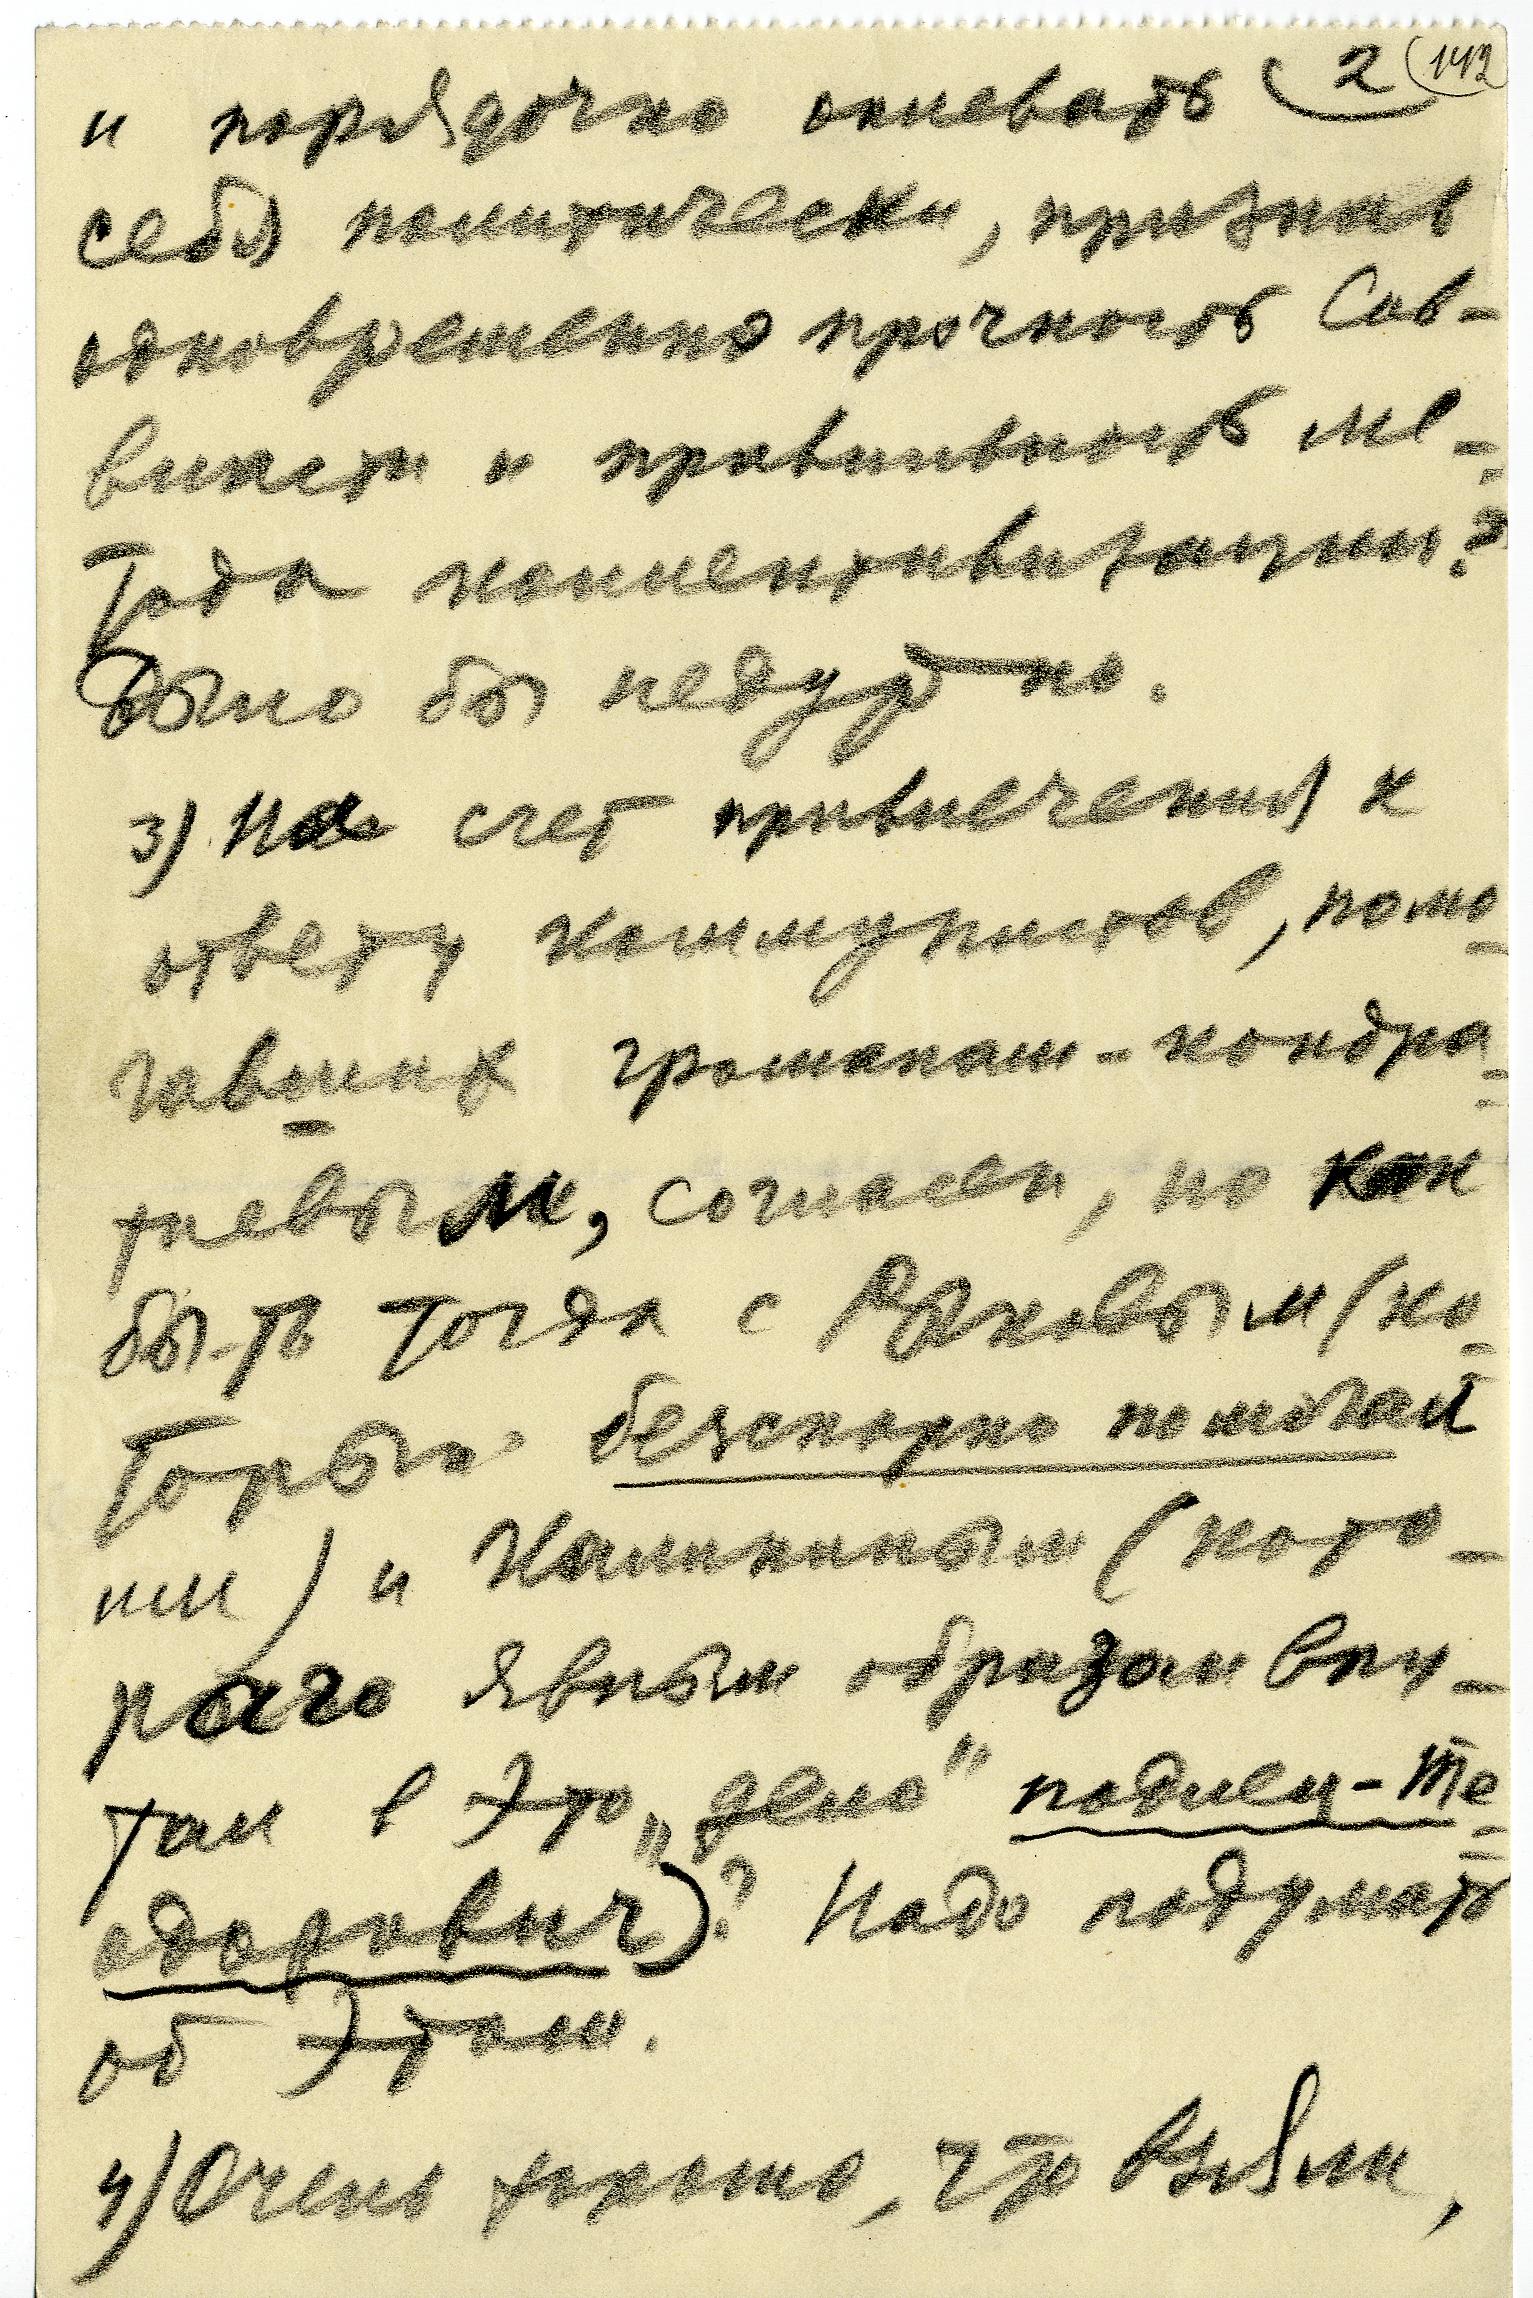 2 142
и порядочно оплевать
себя политически, признав
одновременно прочность Сов-
власти и правильность ме-
тода коллективизации?
Было бы недурно.
3) Насчет привлечения к
ответу коммунистов, помо-
гавших громанам-кондра-
тьевым, согласен, но как
быть тогда с Рыковым (ко-
торый бесспорно помогал
им) и Калининым (кото-
рого явным образом впу-
тал в это „дело" подлец-Те-
одорович)? Надо подумать
об этом.
4) Очень хорошо, что взяли,